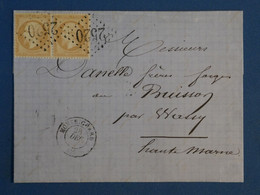 2520 2520
Messieurs
Danelle frères forges
au Buisson
par Wassy
haute Marne